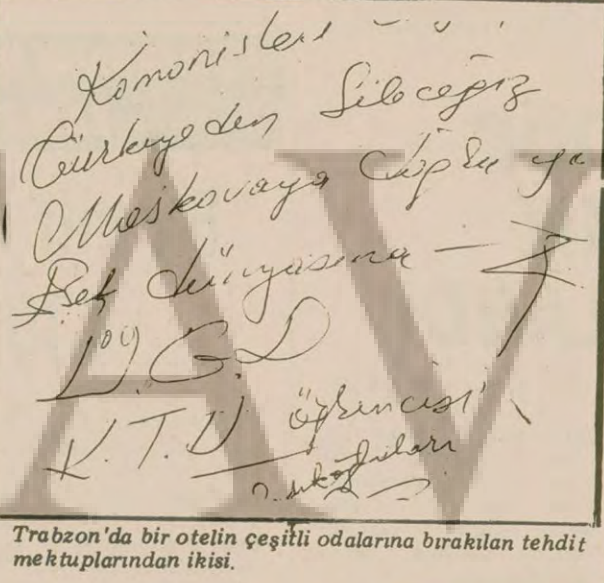 Komonisleri
Türkiyeden Sileceğiz
Moskovaya Doğru ya
dünyasına
Ü.G.D
K.T.Ü öğrencisi
Trabzon'da bir otelin çeşitli odalarına bırakılan tehdit
mektuplarından ikisi.